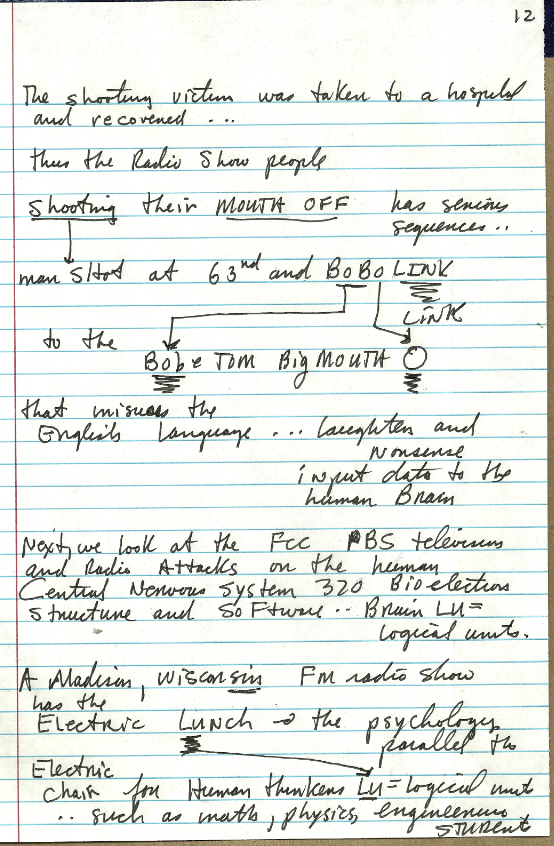 12
The shooting victim was taken to a hospital
and recovered ...
thus the Radio Show people
shooting their MOUTH OFF has serious
sequences ..
man SHot at 63nd and BoBo LINK
LINK
to the
Bob e TOM Big MOUTH O
that misuses the
English Language ... laughter and
Nonsense
input data to the
human Brain
Next, we look at the FCC PBS television
and Radio Attacks on the human
Central Nervous System 320 Bioelectron
structure and SoFtware .. Brain LU=
logical units.
A Madison, Wisconsin FM radio show
has the
Electric LUNCH → the psychology
parallel the
Electric
Chair for Human thinkers Lu=logical unit
.. such as math, physics, engineering
STUDENT